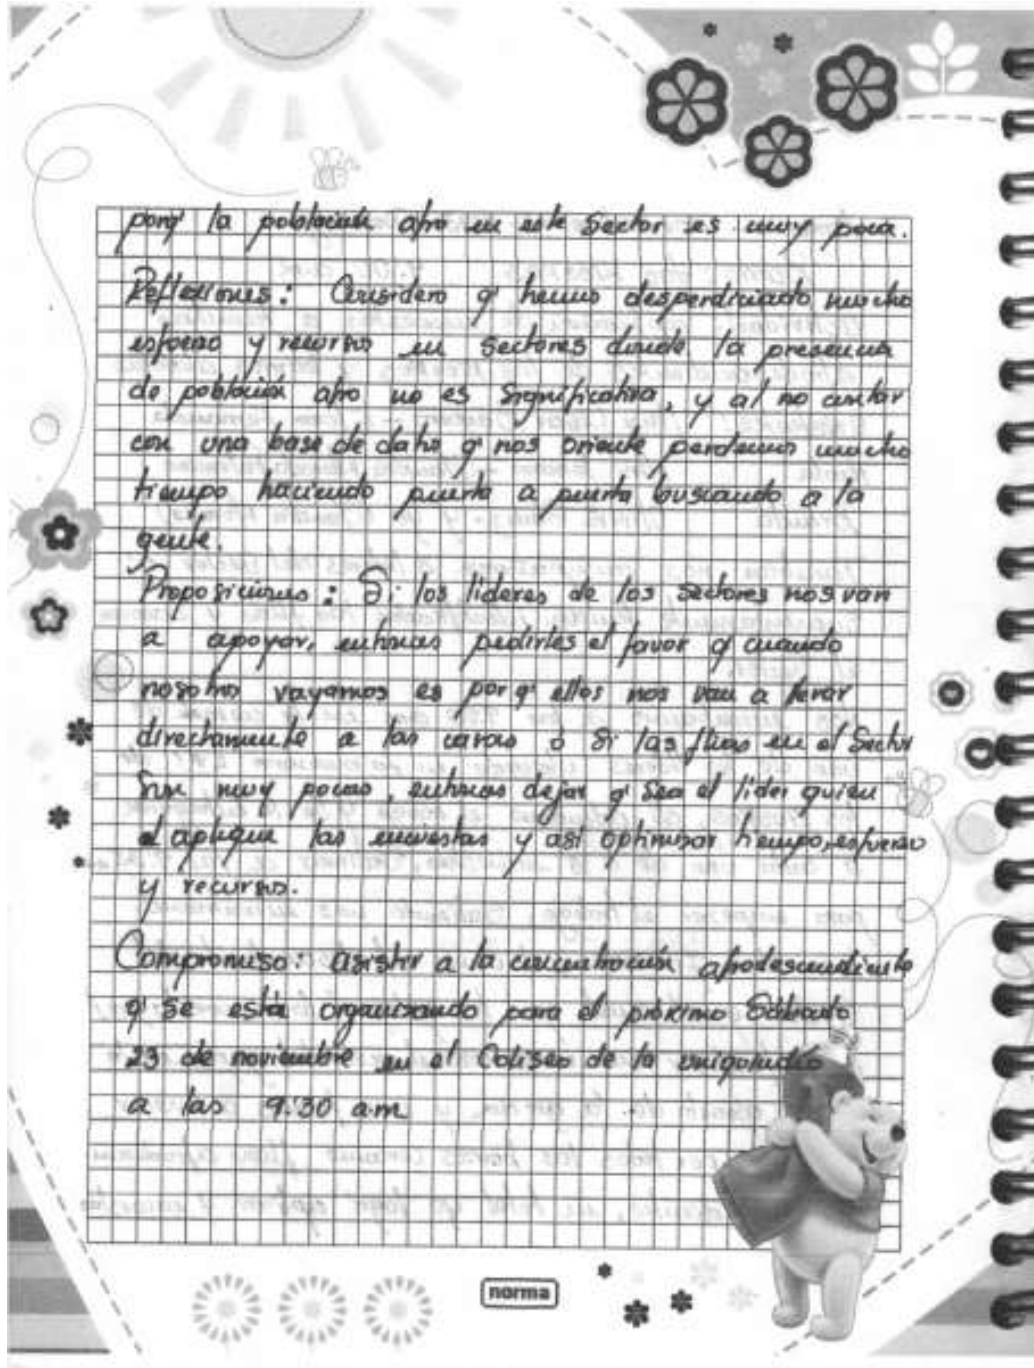 porq' la población afro en este Sector es muy poca.
Reflexiones: Considero q' hemos desperdiciado mucho
esfuerzo y recursos en Sectores donde la presencia
de población afro no es Significativa, y al no contar
con una base de datos q' nos oriente perdemos mucho
tiempo haciendo puerta a puerta buscando a la
gente.
Proposiciones: Si los lideres de los Sectores nos van
a apoyar, entonces pedirles el favor q' cuando
nosotros vayamos es porq' ellos nos van a llevar
directamente a las casas o Si las flias en el Sector
Son muy pocas, entonces dejar q' Sea el lider quien
aplique las encuestas y asi optimizar tiempo, esfuerzo
y recursos.
Compromiso: asistir a la concentración afrodescendiente
q' se está organizando para el próximo Sábado
23 de noviembre en el Coliseo de la
a las 9:30 a.m.
norma